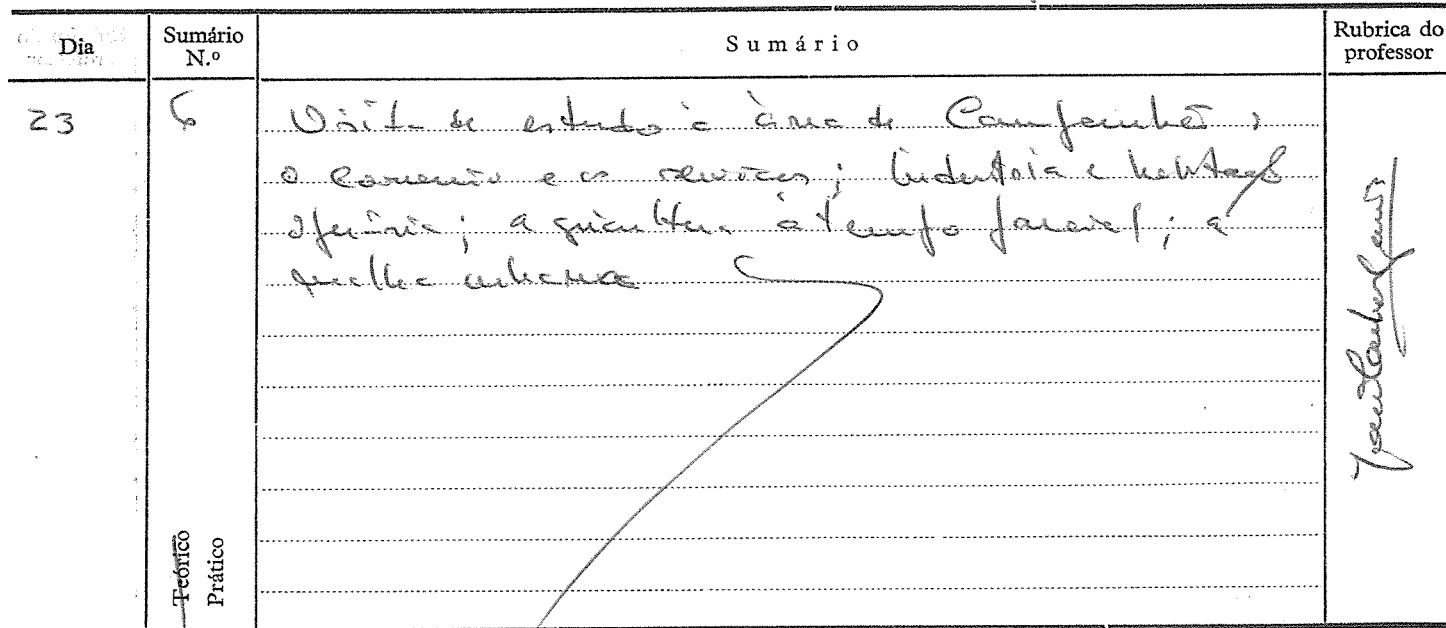 Dia
Sumário N.º
Sumário
Rubrica do professor
23
6
Visita de estudo à área de Campanhã;
o comércio e os serviços; indústria e habitação
operária; agricultura a tempo parcial; a
malha urbana
Teórico
Prático